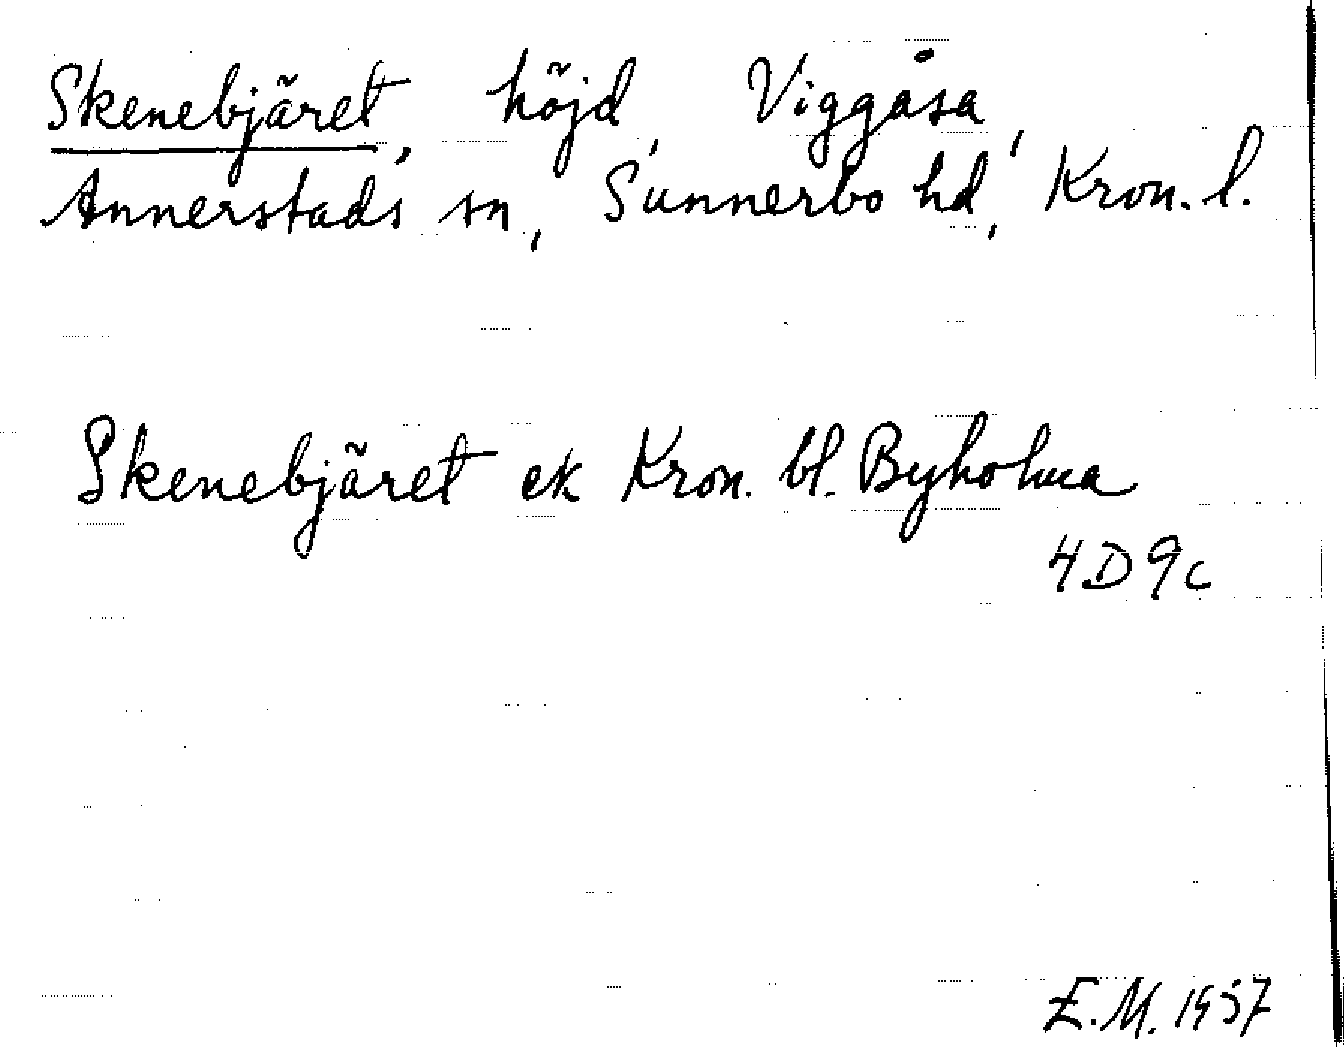 Skenebjäret, höjd, Viggåsa,
Annerstads sn, Sunnerbo hd, Kron. l.
Skenebjäret ek Kron. bl. Byholma
4D 9c
E.M. 1957